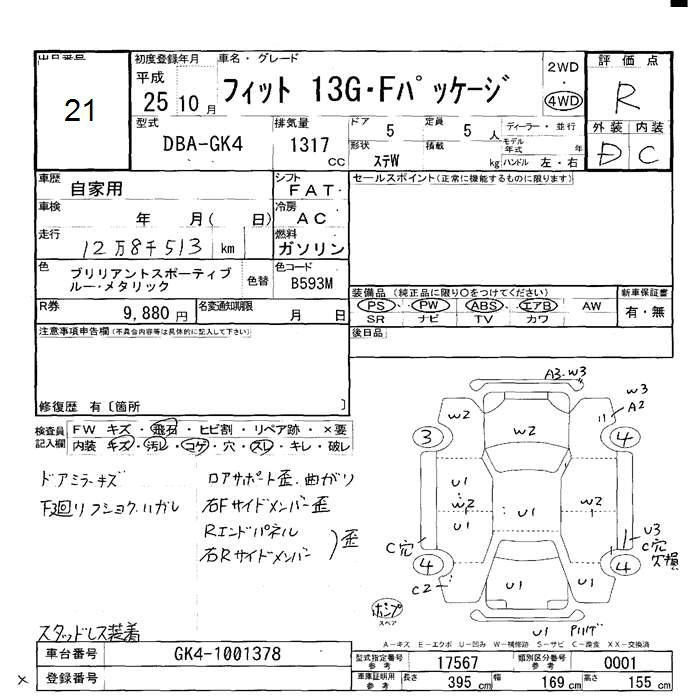 出品番号
21
初度登録年月
平成
25 10 月
車名・グレード
フィット 13G・Fパッケージ
2WD
・
4WD
評価点
R
型式
DBA-GK4
排気量
1317
cc
ドア
5
定員
5 人
ディーラー・並行
モデル
年式
年
形状
ステW
積載
kg
ハンドル 左・右
外装 内装
D C
車歴
自家用
シフト
FAT
セールスポイント(正常に機能するものに限ります)
車検
年 月( 日)
冷房
AC
走行
12万8千513 km
燃料
ガソリン
色
ブリリアントスポーティブ
ルー・メタリック
色替
色コード
B593M
装備品 (純正品に限り○をつけてください)
PS ・ PW ・ ABS ・ エアB ・ AW
SR ナビ TV カワ
新車保証書
有・無
R券
9,880 円
名変通知期限
月 日
後日品
注意事項申告欄(不具合内容等は具体的に記入して下さい)
修復歴 有〔箇所 〕
検査員
記入欄
FW キズ ・ 飛石 ・ ヒビ割 ・ リペア跡 ・ ×要
内装 キズ ・ 汚レ ・ コゲ ・ 穴 ・ スレ ・ キレ ・ 破レ
ドアミラーキズ
下廻リフショク.ハガレ
ロアサポート歪.曲がり
右Fサイドメンバー歪
Rエンドパネル
右Rサイドメンバー
歪
スタッドレス装着
A3-W3
W3
A2
W2
W2
3
4
U1
W2
U1
U1
W2
U3
C穴
欠損
C穴
4
4
C2
U1
U1
U1
ポンプ
スペア
A-キズ E-エクボ U-凹み W-補修跡 S-サビ C-腐食 XX-交換済
車台番号
GK4-1001378
登録番号
×
型式指定番号
参考
17567
類別区分番号
参考
0001
車庫証明用
参考
長さ
395 cm
幅
169 cm
高さ
155 cm